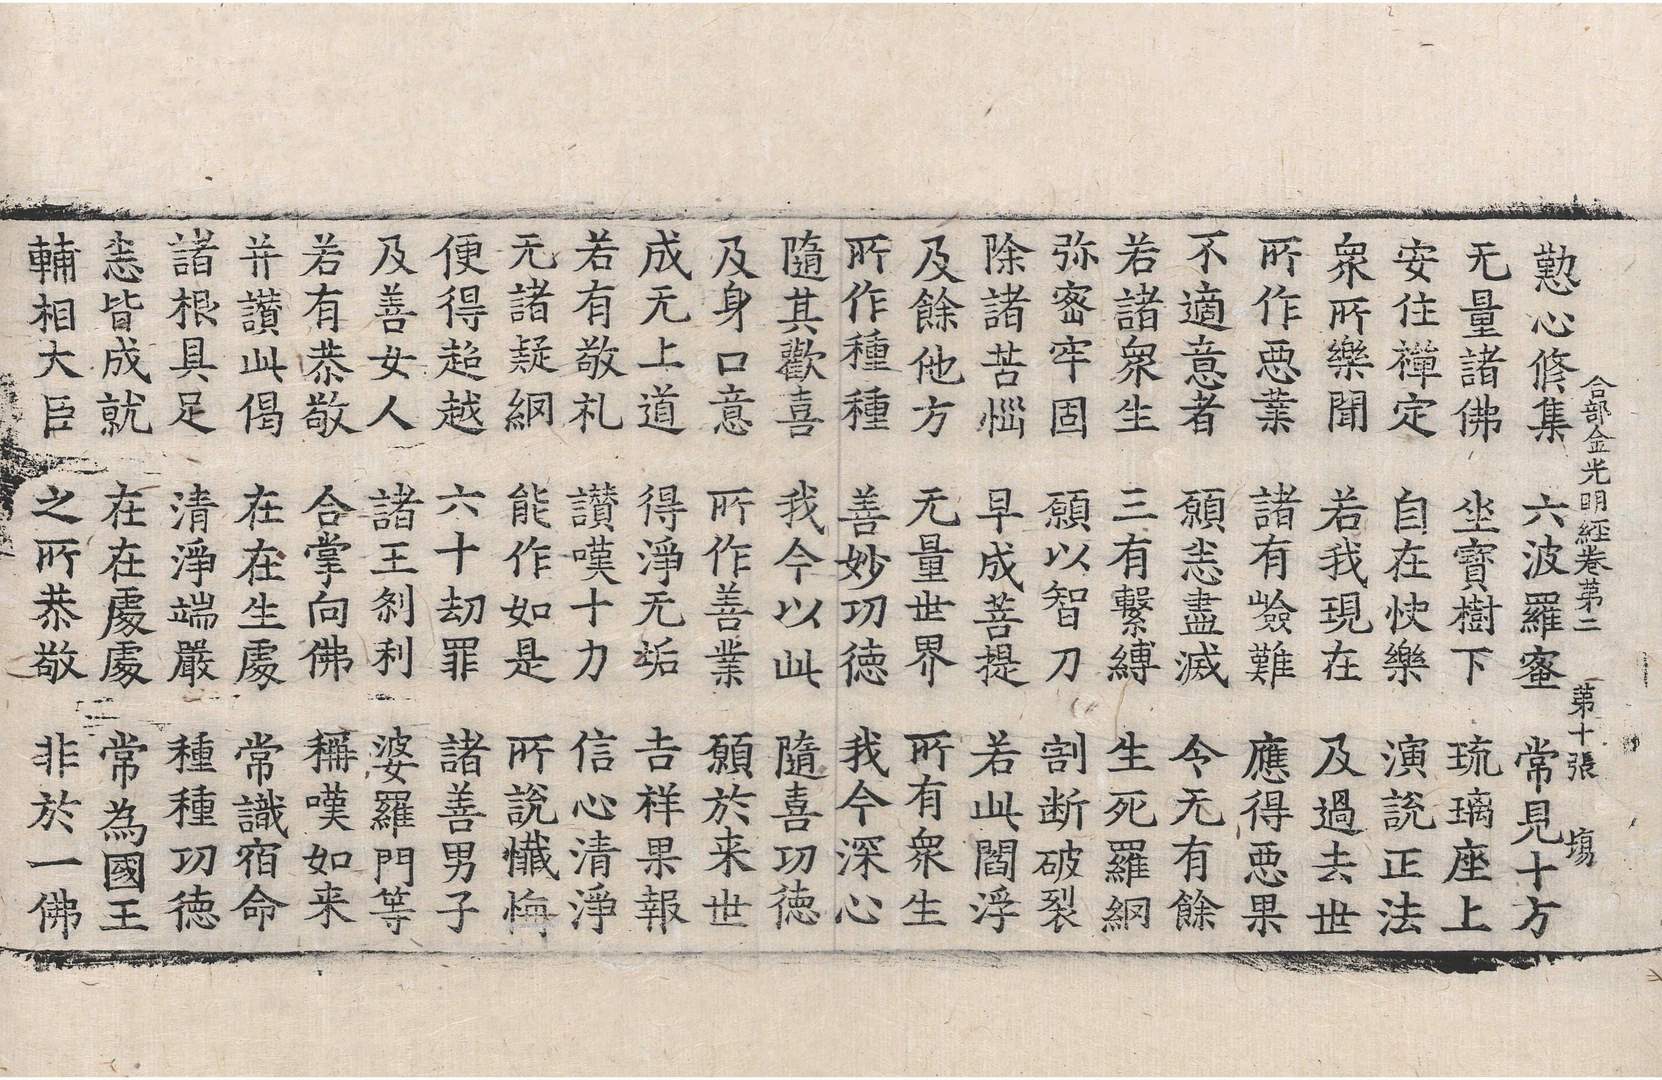 合部金光明經卷苐二　苐十張　塲
懃心脩集　六波羅蜜　常見十方
无量諸佛　坐寶樹下　琉璃座上
安住禪定　自在快樂　演説正法
衆所樂聞　若我現在　及過去世
所作惡業　諸有嶮難　應得惡果
不適意者　願悉盡滅　令无有餘
若諸衆生　三有繫縛　生死羅網
弥密牢固　願以智刀　割断破裂
除諸苦惱　早成菩提　若此閻浮
及餘他方　无量世界　所有衆生
所作種種　善妙功德　我今深心
隨其歡喜　我今以此　隨喜功德
及身口意　所作善業　願於来世
成无上道　得淨无垢　吉祥果報
若有敬礼　讃嘆十力　信心清淨
无諸疑網　能作如是　所説懺悔
便得超越　六十劫罪　諸善男子
及善女人　諸王刹利　婆羅門等
若有恭敬　合掌向佛　稱嘆如来
并讃此偈　在在生處　常識宿命
諸根具足　清淨端嚴　種種功德
悉皆成就　在在處處　常為國王
輔相大臣　之所恭敬　非於一佛